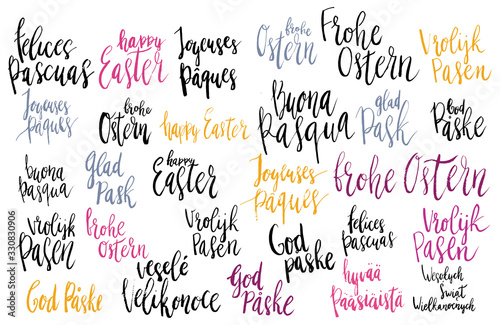 felices
pascuas
happy
Easter
Joyeuses
Pâques
Frohe
Ostern
Frohe
Ostern
Vrolijk
Pasen
Joyeuses
Pâques
frohe
Ostern
happy Easter
Buona
Pasqua
glad
Pask
God
Påske
buona
pasqua
Glad
Pask
happy
Easter
Joyeuses
Pâques
frohe Ostern
Vrolijk
Pasen
frohe
Ostern
Vrolijk
Pasen
God
påske
felices
pascuas
Vrolijk
Pasen
God Påske
veselé
Velikonoce
God
Påske
hyvää
Pääsiäistä
Wesołych
Świąt
Wielkanocnych
Adobe Stock | #330830906